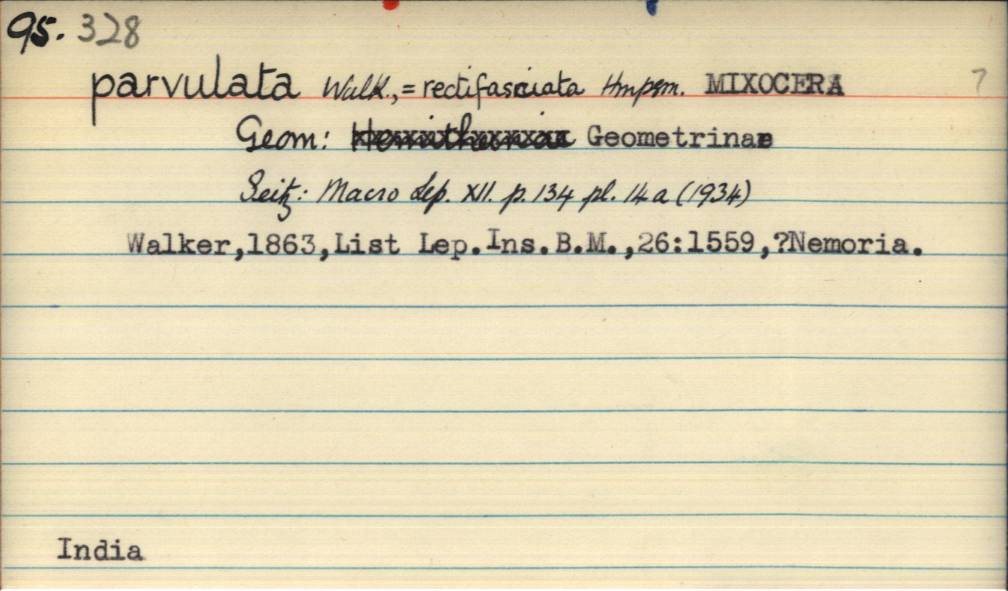 95. 328
parvulata Walk., = rectifasciata Hmpsn. MIXOCERA 7
Geom: Geometrinae
Seitz: Macro Lep. XII. p. 134 pl. 14a (1934)
Walker,1863,List Lep.Ins.B.M.,26:1559,?Nemoria.
India